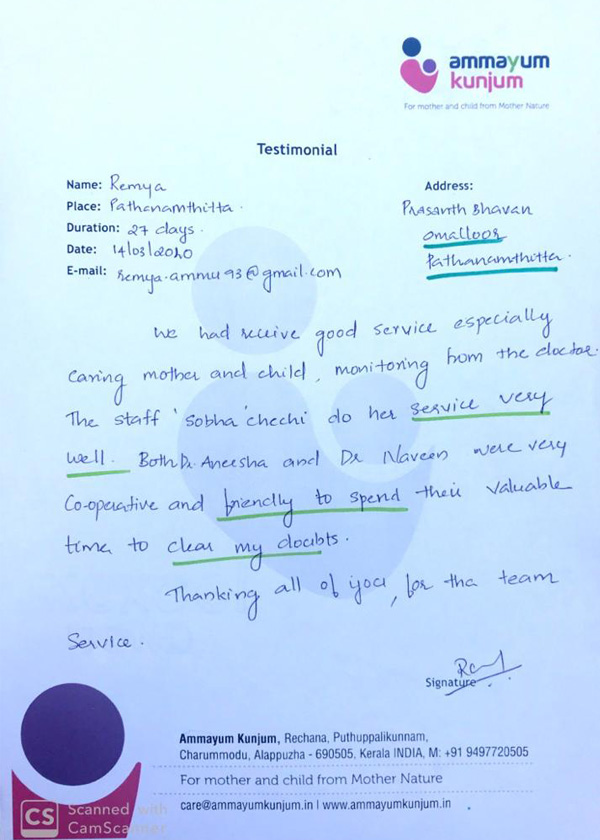 ammayum
kunjum
For mother and child from Mother Nature
Testimonial
Name: Remya
Place: Pathanamthitta.
Duration: 27 days.
Date: 14/03/2020
E-mail: remya.ammu93@gmail.com
Address:
Prasanth Bhavan
Omalloor
Pathanamthitta.
We had receive good service especially
caring mother and child, monitoring from the doctor.
The staff 'sobha' chechi do her service very
well. Both Dr. Aneesha and Dr Naveen were very
Co-operative and friendly to spend their valuable
time to clear my doubts.
Thanking all of you, for tha team
Service.
Signature
Ammayum Kunjum, Rechana, Puthuppalikunnam,
Charummodu, Alappuzha - 690505, Kerala INDIA, M: +91 9497720505
For mother and child from Mother Nature
care@ammayumkunjum.in | www.ammayumkunjum.in
CS Scanned with
CamScanner